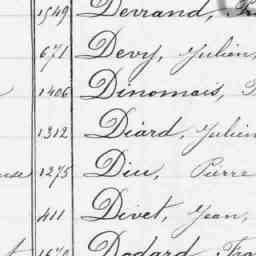 1549 Devrand,
671 Devy, Julien,
1406 Dinomais,
1312 Diard, Julien
1275 Diu, Pierre
411 Divet, Jean,
Dodard,